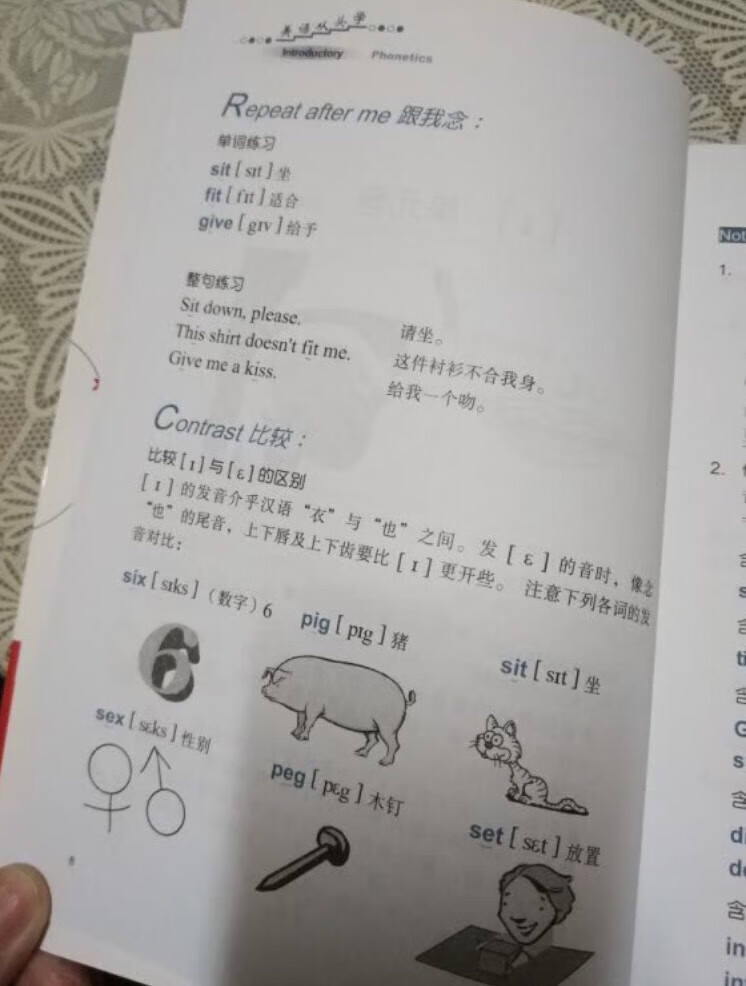 英语从头学
Introductory Phonetics
Repeat after me 跟我念：
单词练习
sit [ sɪt ] 坐
fit [ fɪt ] 适合
give [ gɪv ] 给予
整句练习
Sit down, please. 请坐。
This shirt doesn't fit me. 这件衬衫不合我身。
Give me a kiss. 给我一个吻。
Contrast 比较：
比较 [ ɪ ] 与 [ ɛ ] 的区别
[ ɪ ] 的发音介乎汉语“衣”与“也”之间。发 [ ɛ ] 的音时，像念
“也”的尾音，上下唇及上下齿要比 [ ɪ ] 更开些。 注意下列各词的发
音对比：
six [ sɪks ]（数字）6
pig [ pɪg ] 猪
sit [ sɪt ] 坐
6
sex [ sɛks ] 性别
peg [ pɛg ] 木钉
set [ sɛt ] 放置
6
Not
1.
2.